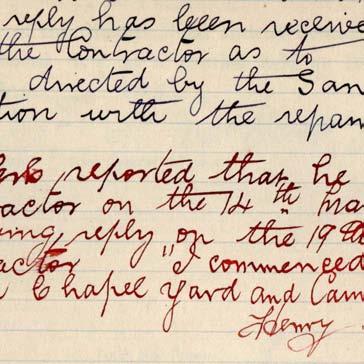 reply has been receive
the Contractor as to
directed by the San
tion with the repair
reported that he
actor on the 14th Ma
ing reply, on the 19th
actor "I commenced
Chapel Yard and Cam
Henry